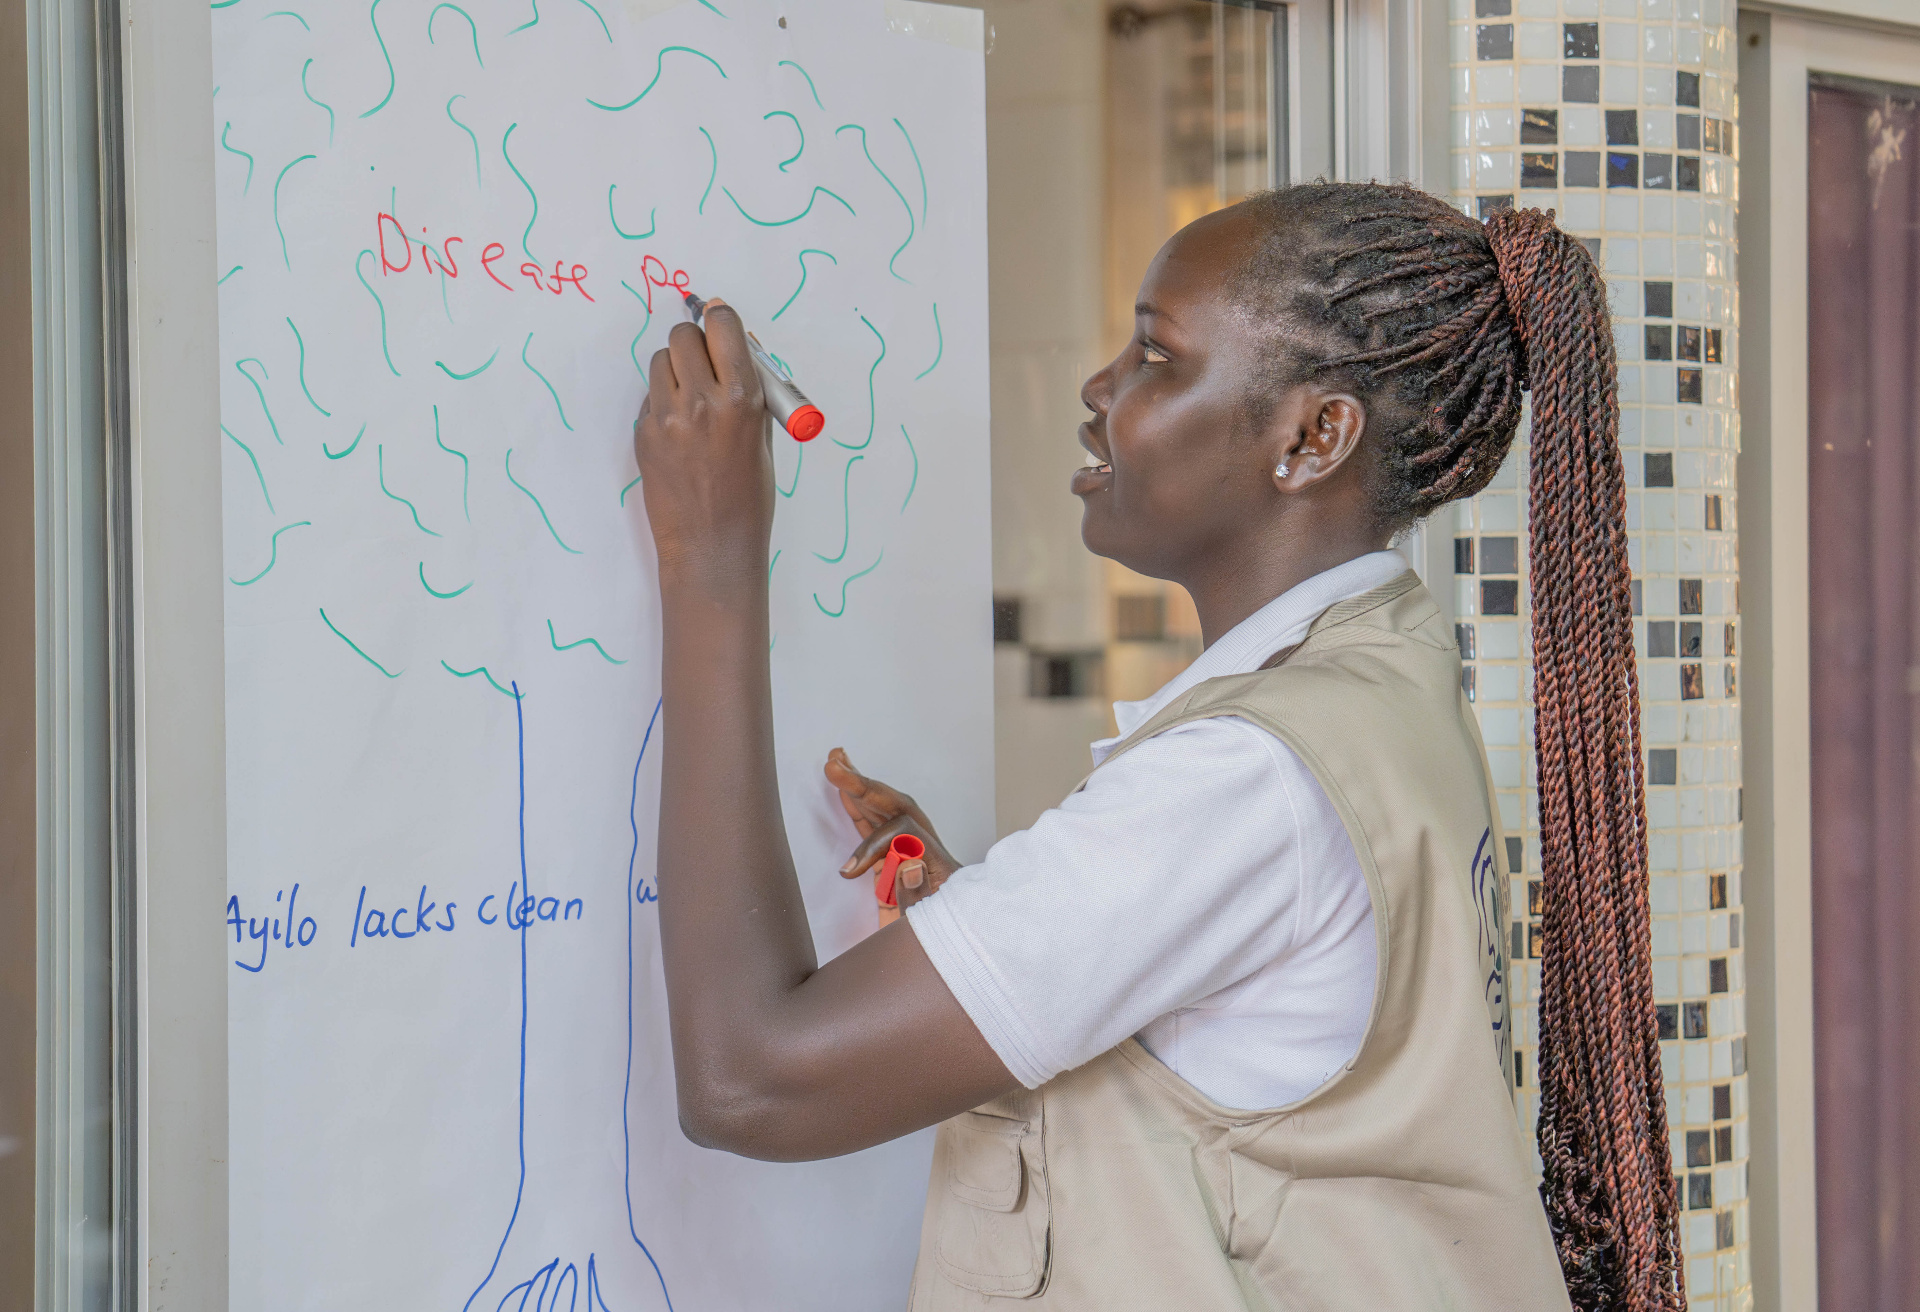 Disease pe
Ayilo lacks clean w